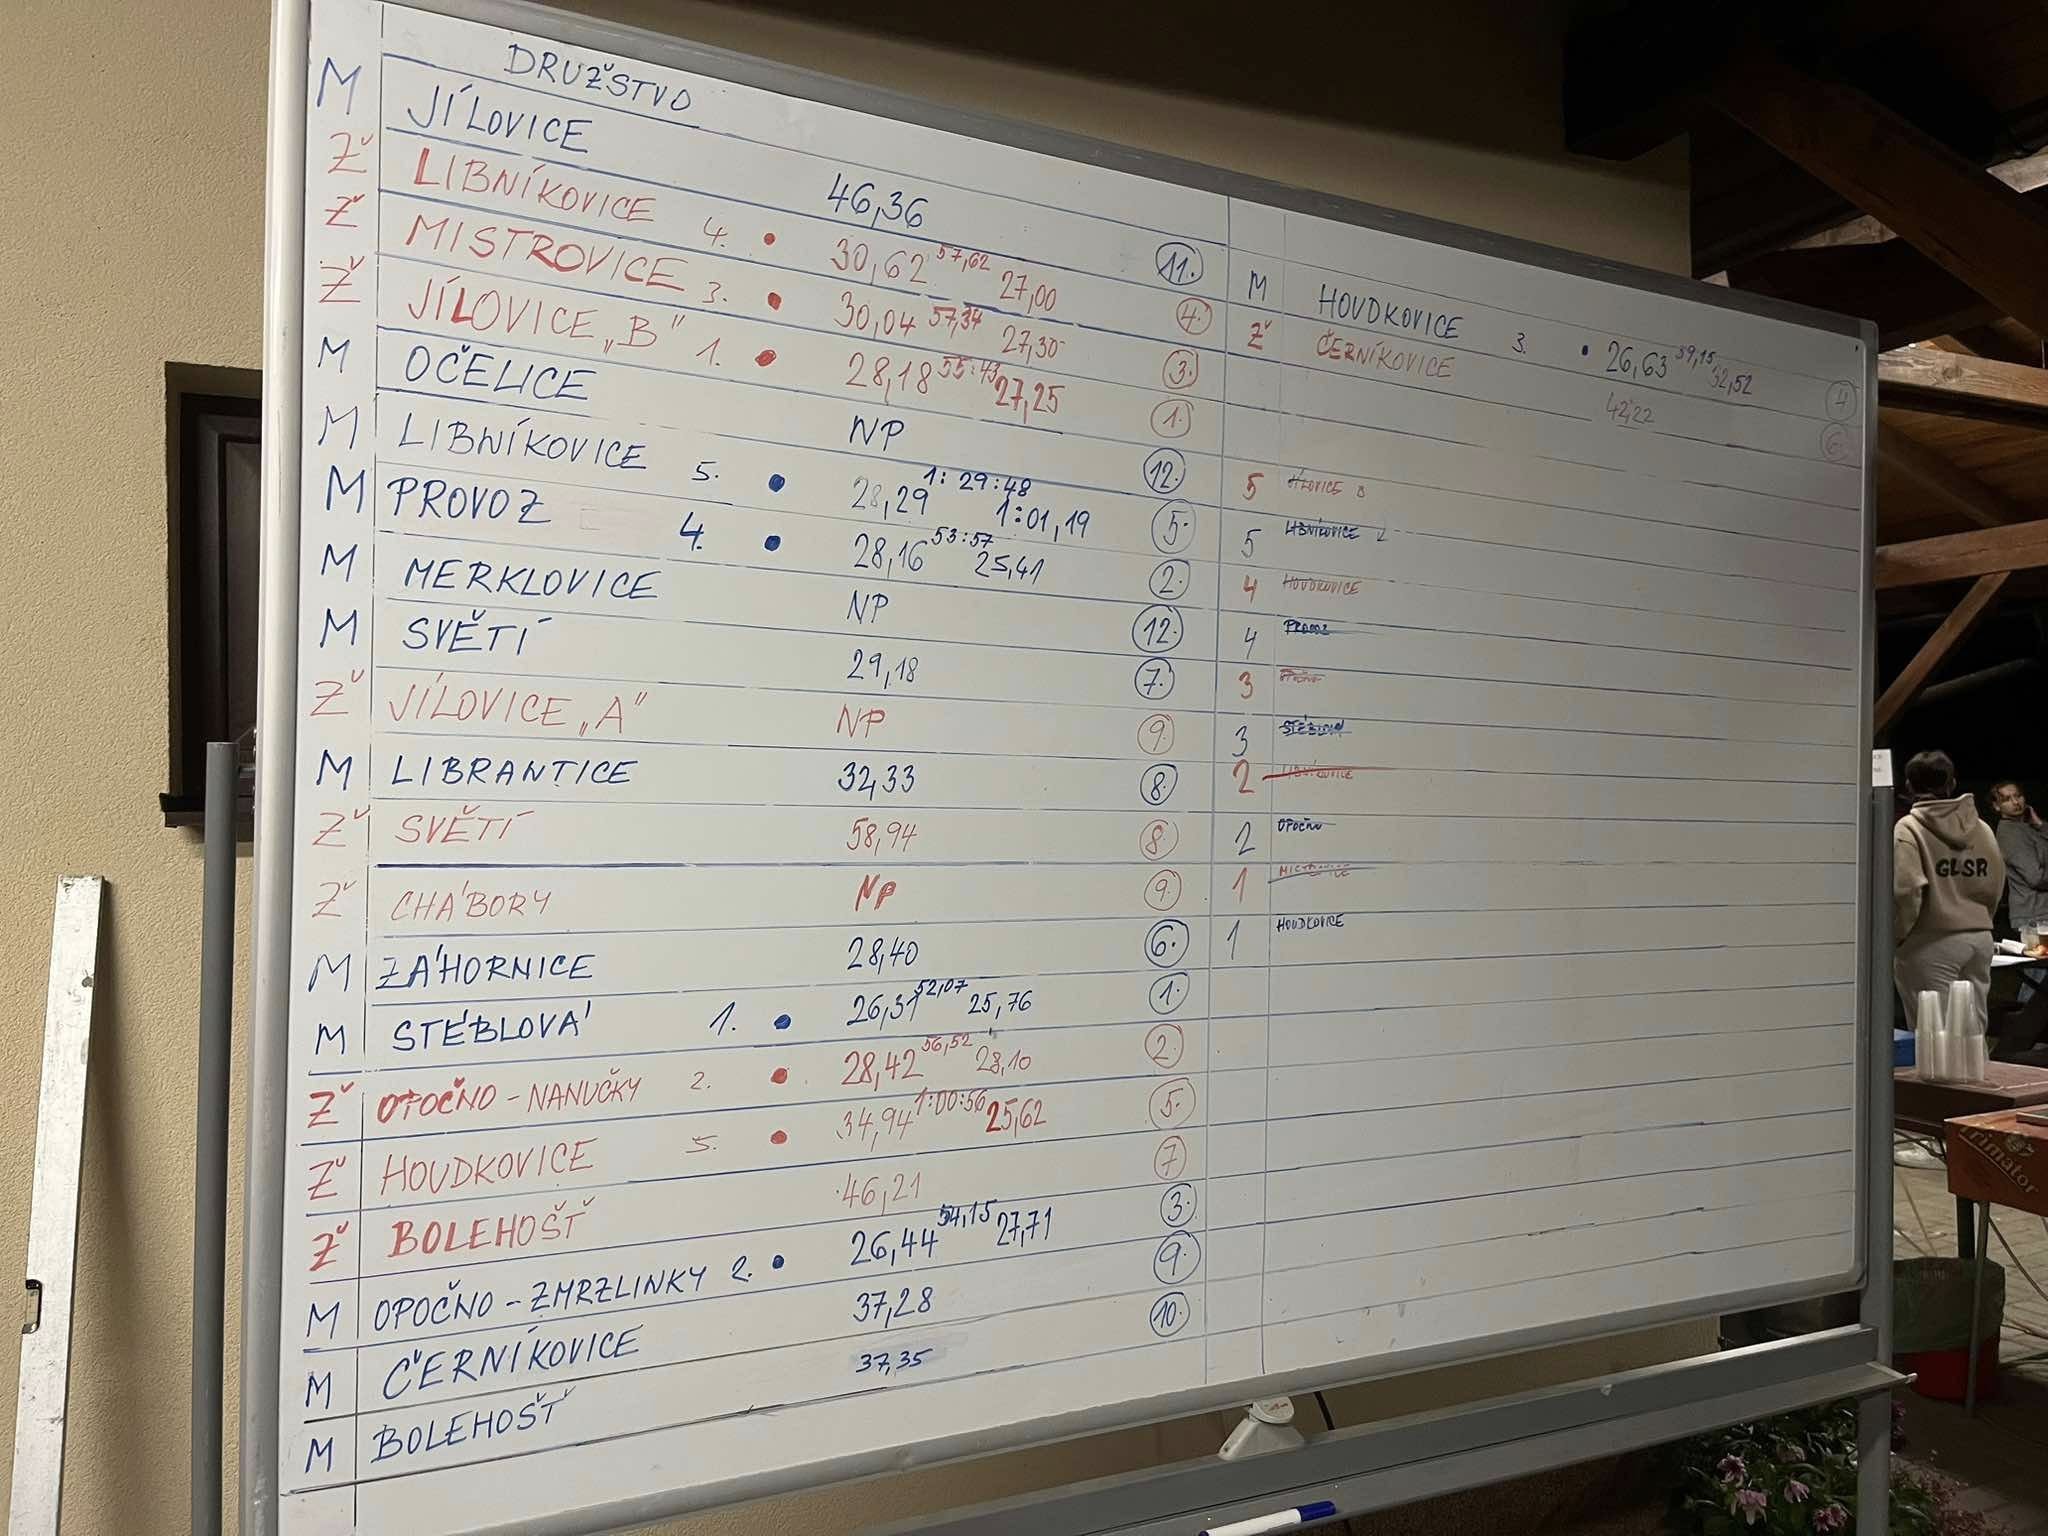 DRUŽSTVO
M JÍLOVICE 46,36 11.
Ž LIBNÍKOVICE 4. • 30,62 57,62 27,00 4.
Ž MISTROVICE 3. • 30,04 57,34 27,30 3.
Ž JÍLOVICE „B" 1. • 28,18 55:43 27,25 1.
M OČELICE NP 12.
M LIBNÍKOVICE 5. • 28,29 1:29:48 1:01,19 5.
M PROVOZ 4. • 28,16 53:57 25,41 2.
M MERKLOVICE NP 12.
M SVĚTÍ 29,18 7.
Ž JÍLOVICE „A" NP 9.
M LIBRANTICE 32,33 8.
Ž SVĚTÍ 58,94 8.
Ž CHÁBORY NP 9.
M ZÁHORNICE 28,40 6.
M STÉBLOVÁ 1. • 26,31 52,07 25,76 1.
Ž OPOČNO - NANUČKY 2. • 28,42 56,52 28,10 2.
Ž HOUDKOVICE 5. • 34,94 1:00:56 25,62 5.
Ž BOLEHOŠŤ 46,21 7
M OPOČNO - ZMRZLINKY 2. • 26,44 54,15 27,71 3.
M ČERNÍKOVICE 37,28 9.
M BOLEHOŠŤ 37,35 10.
M HOUDKOVICE 3. • 26,63 59,15 32,52 4
Ž ČERNÍKOVICE 42,22 6.
5 JÍLOVICE B
5 LIBNÍKOVICE
4 HOUDKOVICE
4 PROVOZ
3
3 STÉBLOVÁ
2 LIBNÍKOVICE
2 OPOČNO
1 MISTROVICE
1 HOUDKOVICE
GLSR
Primator